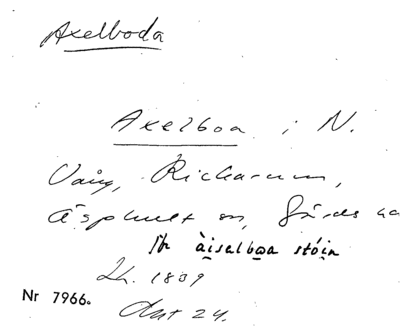 Axelboda
Axelboa i N.
Vång, Richarum,
Äsphult sn, Gärds hd
àiselboa stóin
Lh. 1809
Nr 7966.
Akt 24.